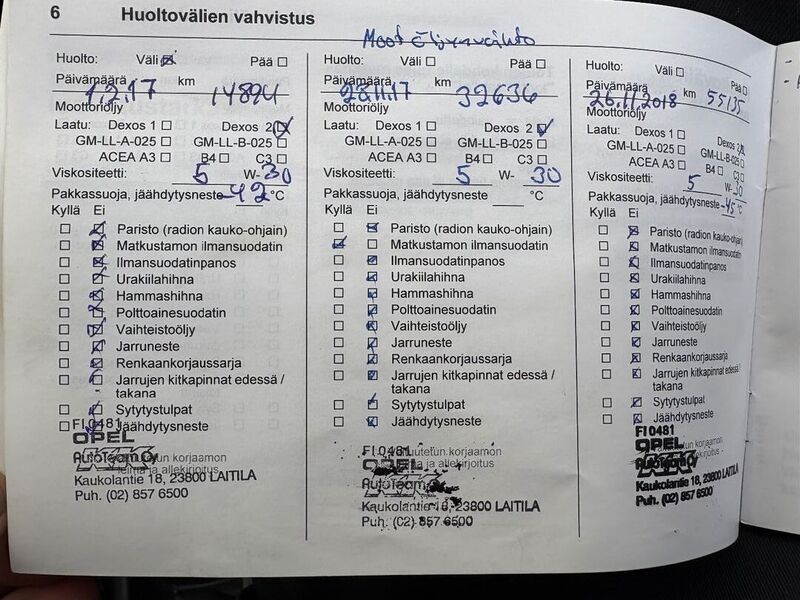 6 Huoltovälien vahvistus
Moot Öljynvaihto
Huolto: Väli ☒ Pää ☐
Päivämäärä 1,2,17 km 14894
Moottoriöljy
Laatu: Dexos 1 ☐ Dexos 2 ☒
GM-LL-A-025 ☐ GM-LL-B-025 ☐
ACEA A3 ☐ B4 ☐ C3 ☐
Viskositeetti: 5 W- 30
Pakkassuoja, jäähdytysneste -42 °C
Kyllä Ei
☐ ☒ Paristo (radion kauko-ohjain)
☐ ☒ Matkustamon ilmansuodatin
☐ ☒ Ilmansuodatinpanos
☐ ☒ Urakiilahihna
☐ ☒ Hammashihna
☐ ☒ Polttoainesuodatin
☐ ☒ Vaihteistoöljy
☐ ☒ Jarruneste
☐ ☒ Renkaankorjaussarja
☐ ☒ Jarrujen kitkapinnat edessä /
takana
☐ ☒ Sytytystulpat
☐ ☒ Jäähdytysneste
FI0481
OPEL
Valtuutetun korjaamon
AutoTeam Oy
leima ja allekirjoitus
Kaukolantie 18, 23800 LAITILA
Puh. (02) 857 6500
Huolto: Väli ☐ Pää ☐
Päivämäärä 28.11.17 km 32636
Moottoriöljy
Laatu: Dexos 1 ☐ Dexos 2 ☒
GM-LL-A-025 ☐ GM-LL-B-025 ☐
ACEA A3 ☐ B4 ☐ C3 ☐
Viskositeetti: 5 W- 30
Pakkassuoja, jäähdytysneste °C
Kyllä Ei
☐ ☒ Paristo (radion kauko-ohjain)
☒ ☐ Matkustamon ilmansuodatin
☐ ☒ Ilmansuodatinpanos
☐ ☒ Urakiilahihna
☐ ☒ Hammashihna
☐ ☒ Polttoainesuodatin
☐ ☒ Vaihteistoöljy
☐ ☒ Jarruneste
☐ ☒ Renkaankorjaussarja
☐ ☒ Jarrujen kitkapinnat edessä /
takana
☐ ☒ Sytytystulpat
☐ ☒ Jäähdytysneste
FI0481
OPEL
Valtuutetun korjaamon
AutoTeam
leima ja allekirjoitus
Kaukolantie 18, 23800 LAITILA
Puh. (02) 857 6500
Huolto: Väli ☐ Pää ☐
Päivämäärä 26.11.2018 km 55135
Moottoriöljy
Laatu: Dexos 1 ☐ Dexos 2 ☒
GM-LL-A-025 ☐ GM-LL-B-025 ☐
ACEA A3 ☐ B4 ☐ C3 ☐
Viskositeetti: 5 W- 30
Pakkassuoja, jäähdytysneste -45 °C
Kyllä Ei
☐ ☒ Paristo (radion kauko-ohjain)
☐ ☒ Matkustamon ilmansuodatin
☐ ☒ Ilmansuodatinpanos
☐ ☒ Urakiilahihna
☐ ☒ Hammashihna
☐ ☒ Polttoainesuodatin
☐ ☒ Vaihteistoöljy
☐ ☒ Jarruneste
☐ ☒ Renkaankorjaussarja
☐ ☒ Jarrujen kitkapinnat edessä /
takana
☐ ☒ Sytytystulpat
☐ ☒ Jäähdytysneste
FI0481
OPEL
korjaamon
allekirjoitus
Kaukolantie 18, 23800 LAITILA
Puh. (02) 857 6500